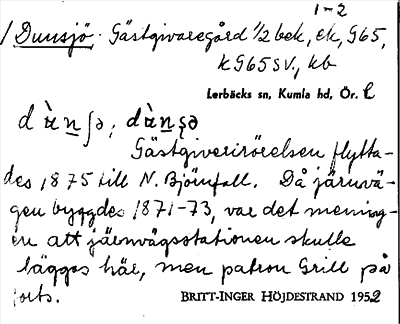 1-2
/ Dunsjö. Gästgivaregård 1/2 bek, ek, G65,
k G65 SV., kb
Lerbäcks sn, Kumla hd, Ör. L
dùnʃə, dùnʂə
Gästgiverirörelsen flytta-
des 1875 till N. Björnfall. Då järnvä-
gen byggdes 1871-73, var det mening-
en att järnvägsstationen skulle
läggas här, men patron Grill på
orts.
BRITT-INGER HÖJDESTRAND 1952